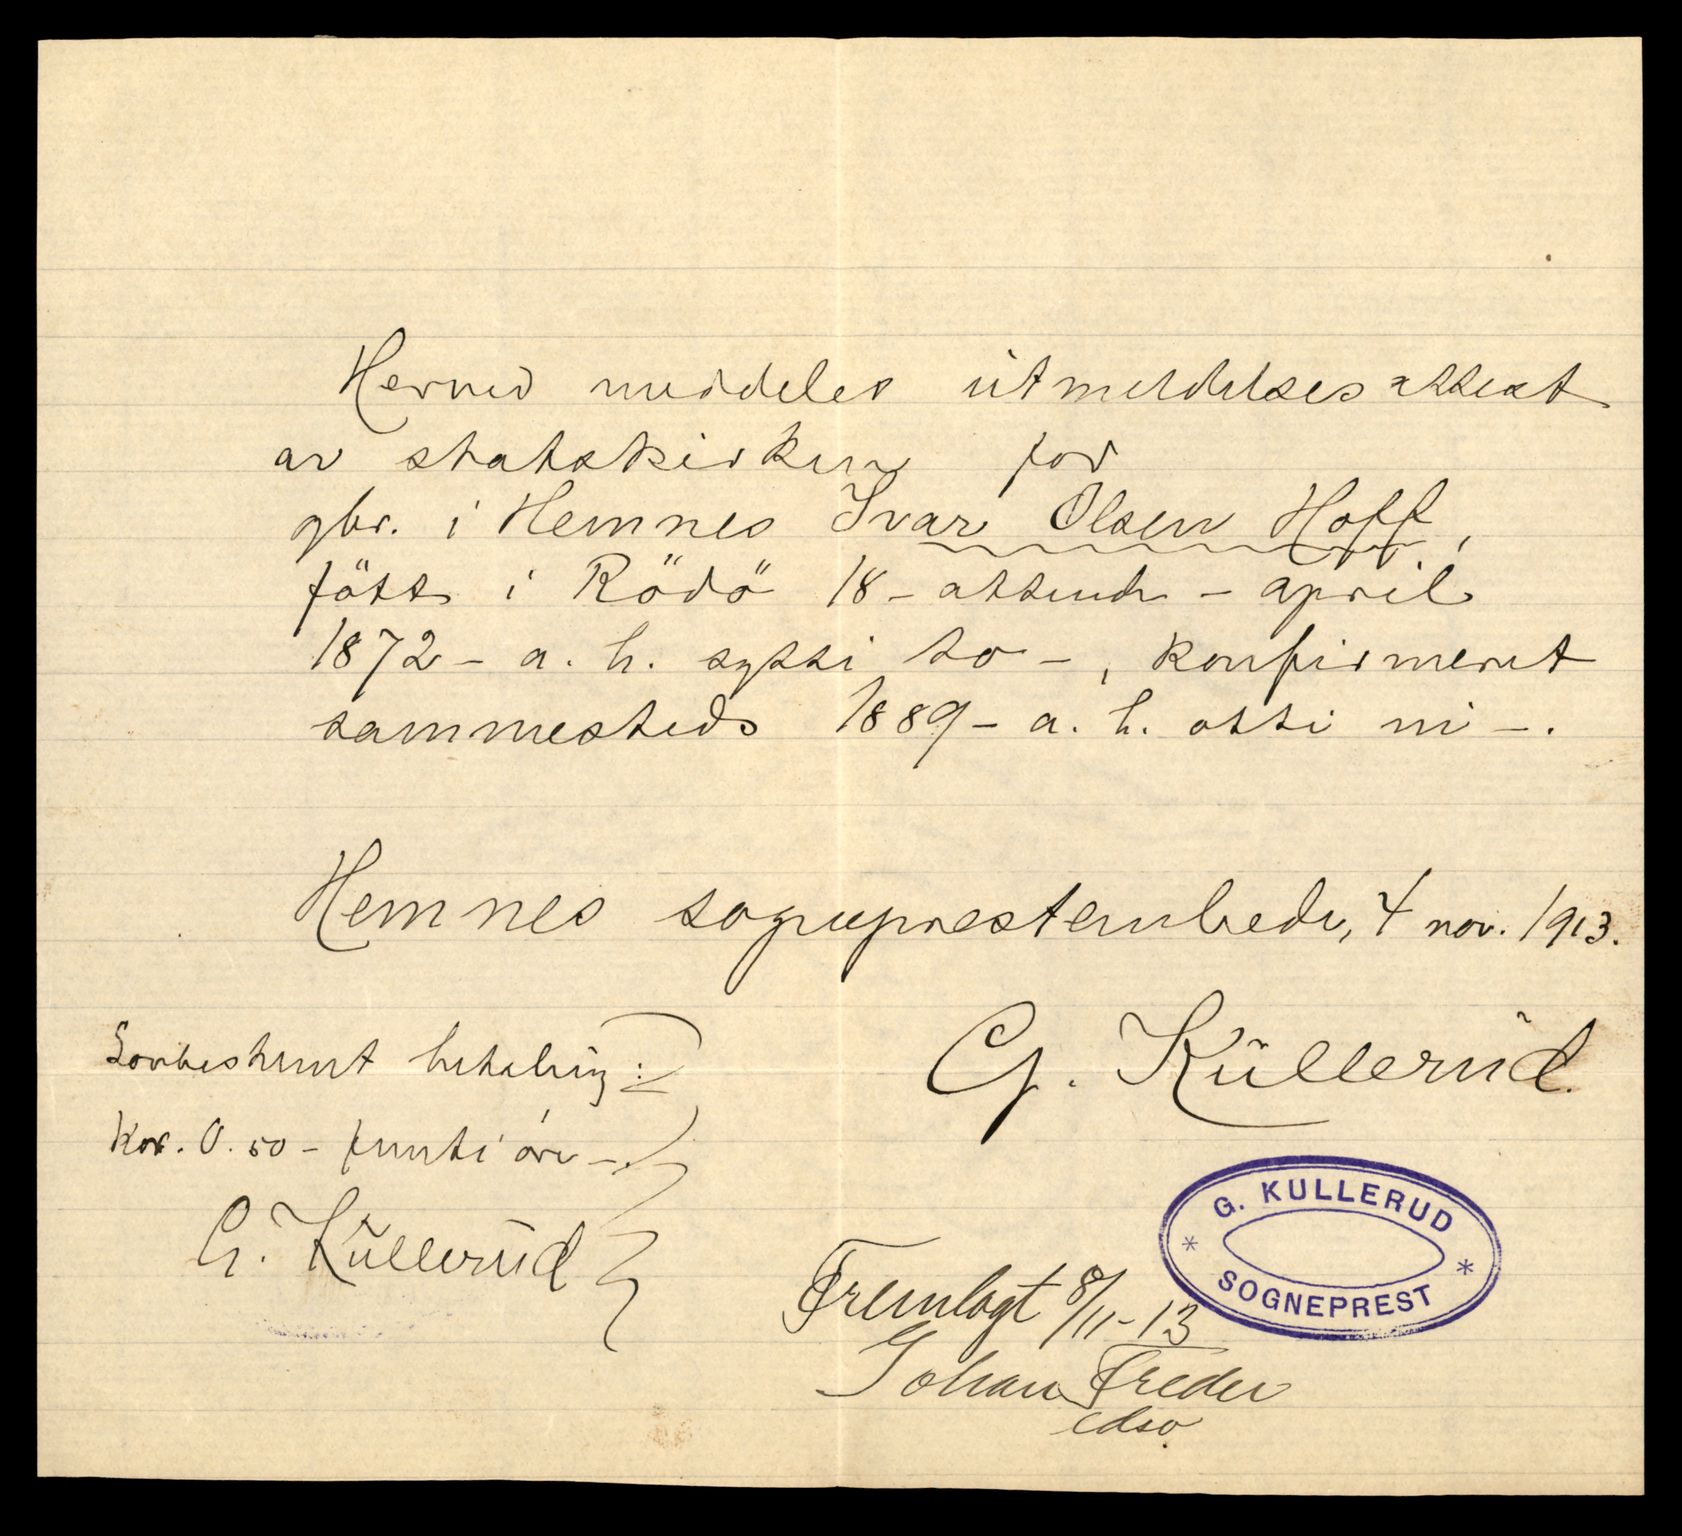 Herved meddeles utmeldelsesattest
av statskirken for
gbr. i Hemnes Ivar Olsen Hoff,
född i Rödö 18 - attende - april
1872 - a. h. sytti to - , konfirmeret
sammesteds 1889 - a. h. otti ni - .
Hemnes sogneprestembede, 4 nov. 1913.
G. Kullerud.
Lovbestemt betaling:
Kr. 0.50 - femti öre - .
G. Kullerud
G. KULLERUD
* *
SOGNEPREST
Fremlagt 8/11-13
Johan Freder
edso.